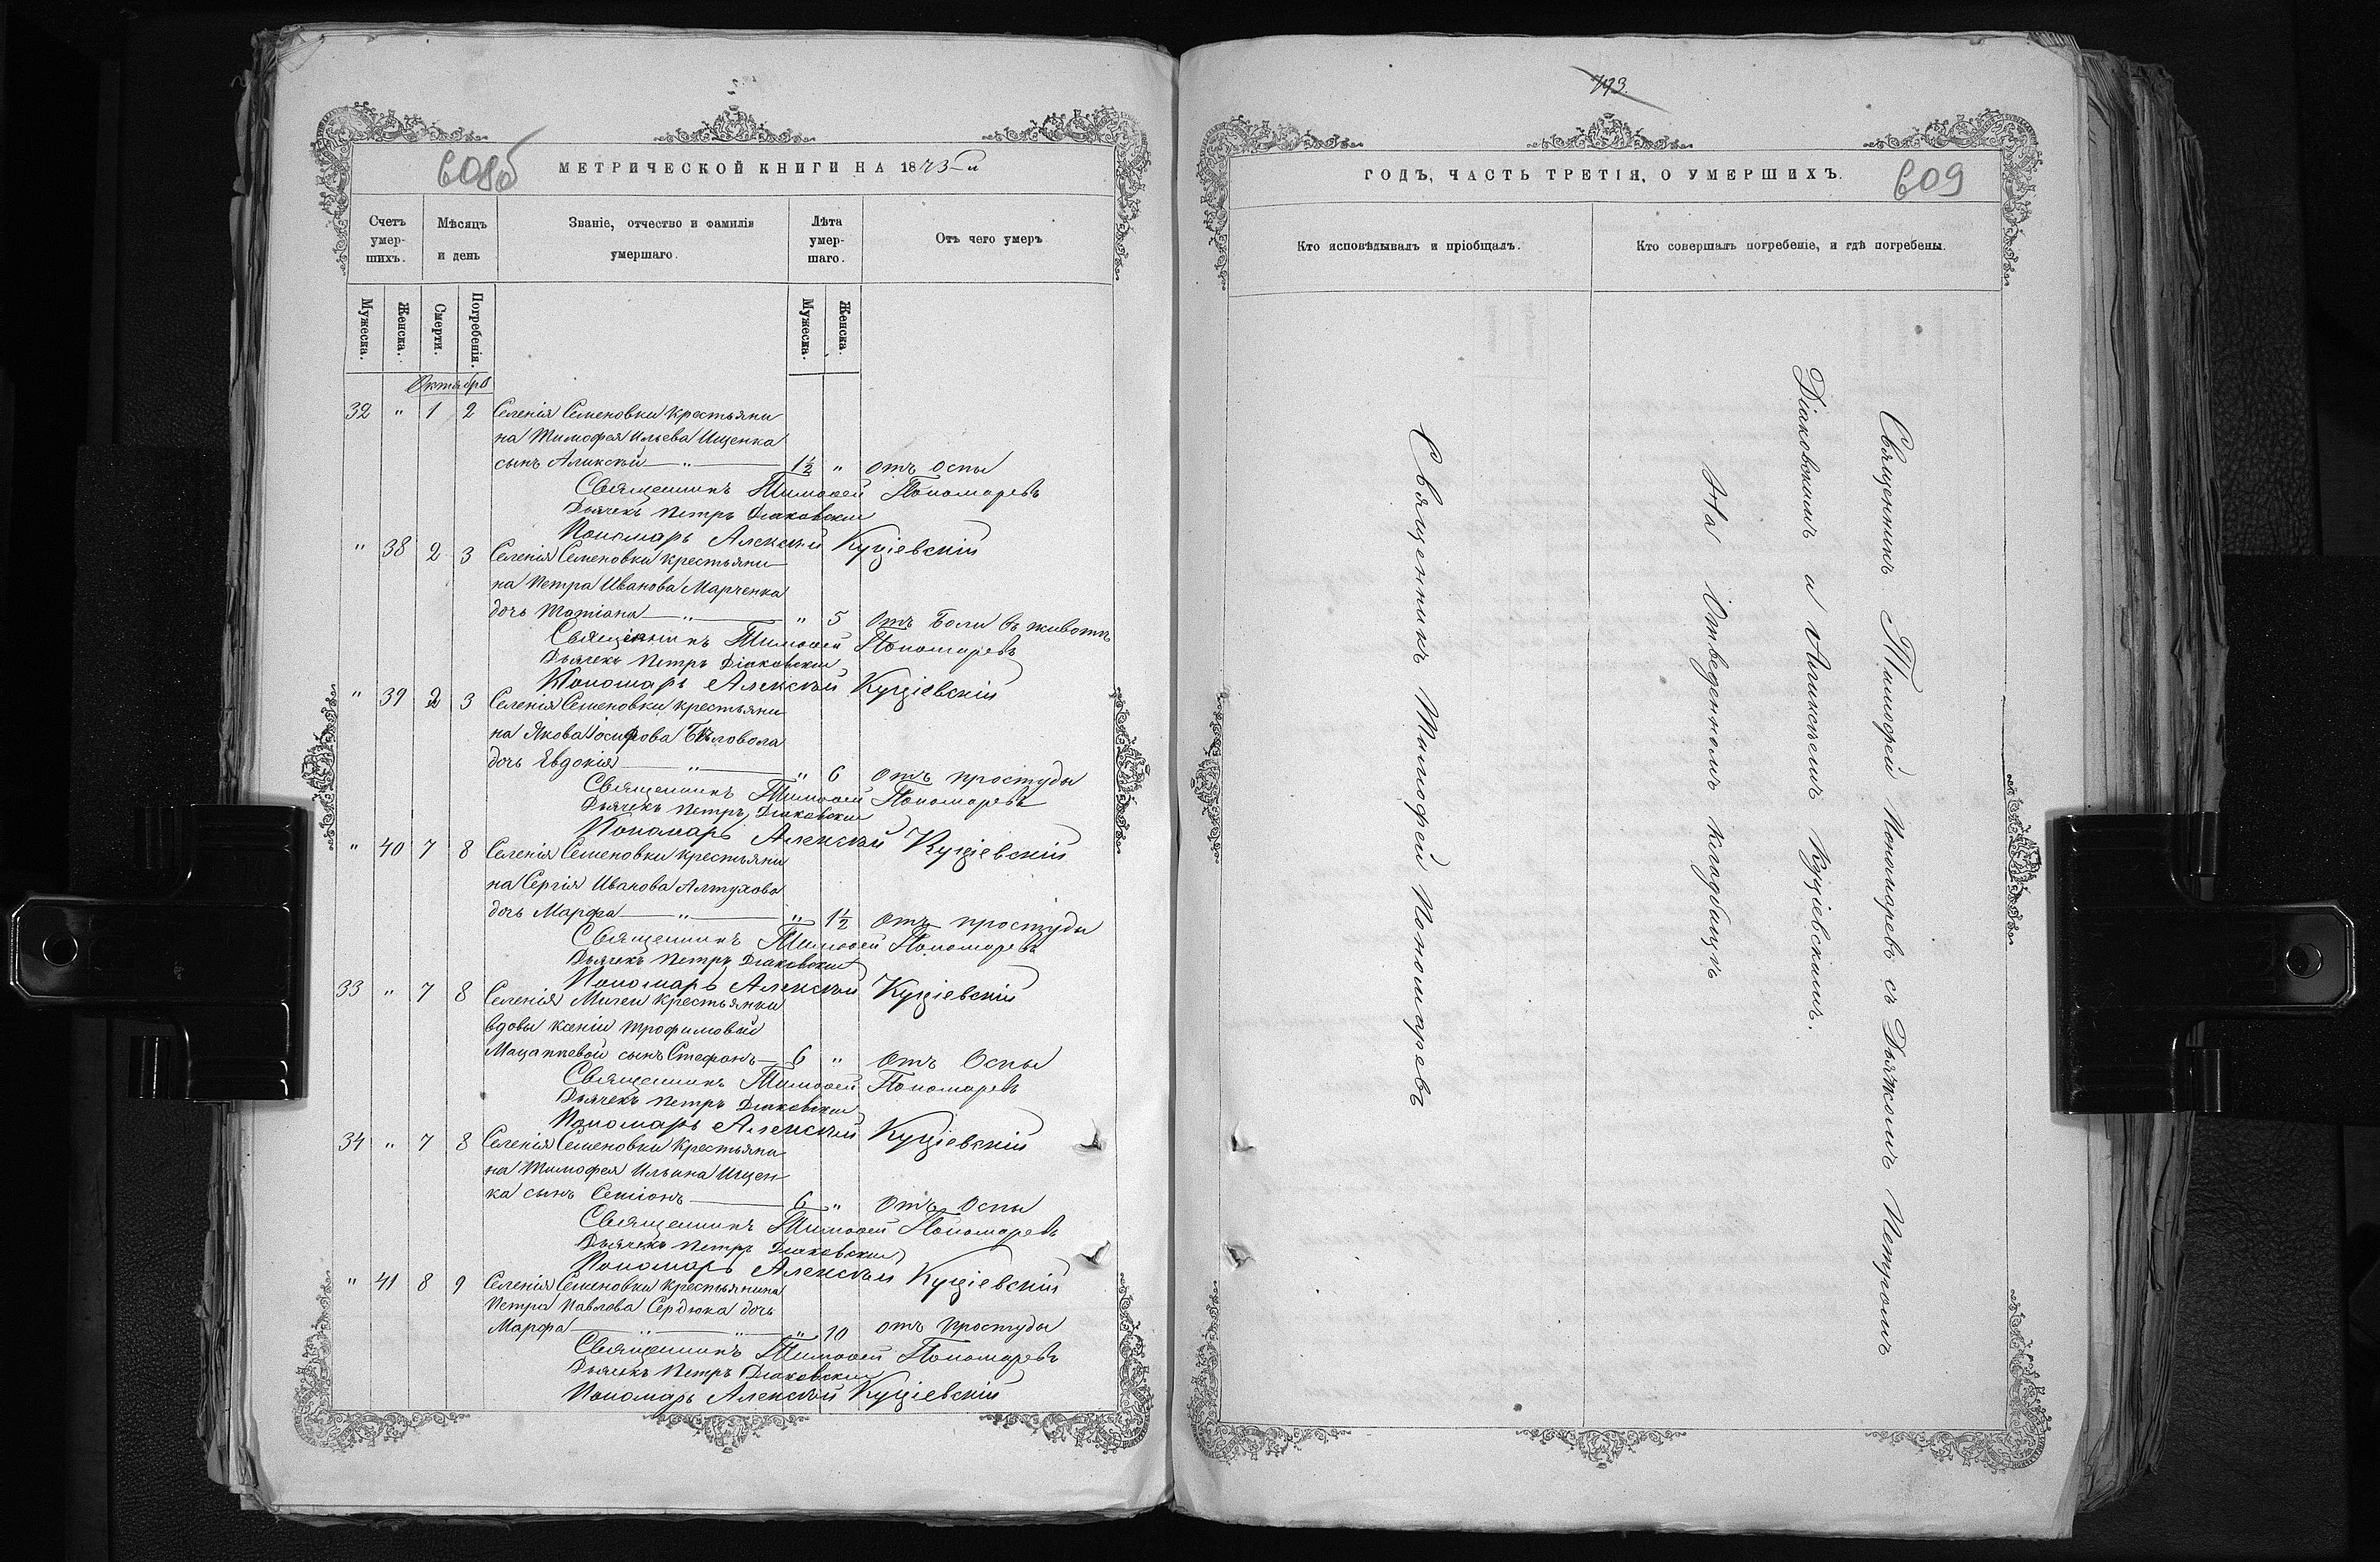 608об
МЕТРИЧЕСКОЙ КНИГИ НА 1873-й
Счетъ умер-шихъ.
Мѣсяцъ и день
Званіе, отчество и фамилія умершаго.
Лѣта умер-шаго.
Отъ чего умеръ
Мужеска.
Женска.
Смерти.
Погребенія.
Мужеска.
Женска.
Октябрь
32 " 1 2 Селенія Семеновки крестьяни
на Тимофея Ильева Ищенка
сынъ Аликсѣй — " — 1½ " отъ оспы
Священникъ Тимоѳей Пономаревъ
Дьячекъ Петръ Діаковскій
Пономарь Алексѣй Куціевскій
" 38 2 3 Селенія Семеновки крестьяни
на Петра Иванова Марченка
дочь Татіана — " — " 5 Отъ Боли въ животѣ
Священникъ Тимоѳей Пономаревъ
Дьячекъ Петръ Діаковскій
Пономарь Алексѣй Куціевскій
" 39 2 3 Селенія Семеновки крестьяни
на Якова Іосифова Бѣловола
дочь Евдокія — " — " 6 отъ простуды
Священникъ Тимоѳей Пономаревъ
Дьячекъ Петръ Діаковскій
Пономарь Алексѣй Куціевскій
" 40 7 8 Селенія Семеновки крестьяни
на Сергія Иванова Алтухова
дочь Марфа — " — " 1½ отъ простуды
Священникъ Тимоѳей Пономаревъ
Дьячекъ Петръ Діаковскій
Пономарь Алексѣй Куціевскій
33 " 7 8 Селенія Милеи крестьянки
вдовы Ксеніи Трофимовой
сынъ Стефанъ — 6 " Отъ Оспы
Священникъ Тимоѳей Пономаревъ
Дьячекъ Петръ Діаковскій
Пономарь Алексѣй Куціевскій
34 " 7 8 Селенія Семеновки Крестьяни
на Тимофея Ильина Ищен
ка сынъ Семіонъ — 6 " Отъ Оспы
Священникъ Тимоѳей Пономаревъ
Дьячекъ Петръ Діаковскій
Пономарь Алексѣй Куціевскій
" 41 8 9 Селенія Семеновки крестьянина
Петра Павлова Сердюка дочь
Марфа — " — " — " 10 отъ простуды
Священникъ Тимоѳей Пономаревъ
Дьячекъ Петръ Діаковскій
Пономарь Алексѣй Куціевскій
793.
ГОДЪ, ЧАСТЬ ТРЕТІЯ, О УМЕРШИХЪ.
609
Кто исповѣдывалъ и пріобщалъ.
Кто совершалъ погребеніе, и гдѣ погребены.
Священникъ Тимофей Пономаревъ
Священникъ Тимофей Пономаревъ съ Дьячкомъ Петромъ
Діаковскимъ и Аликсѣемъ Куціевскимъ.
На Отведенномъ кладбищѣ